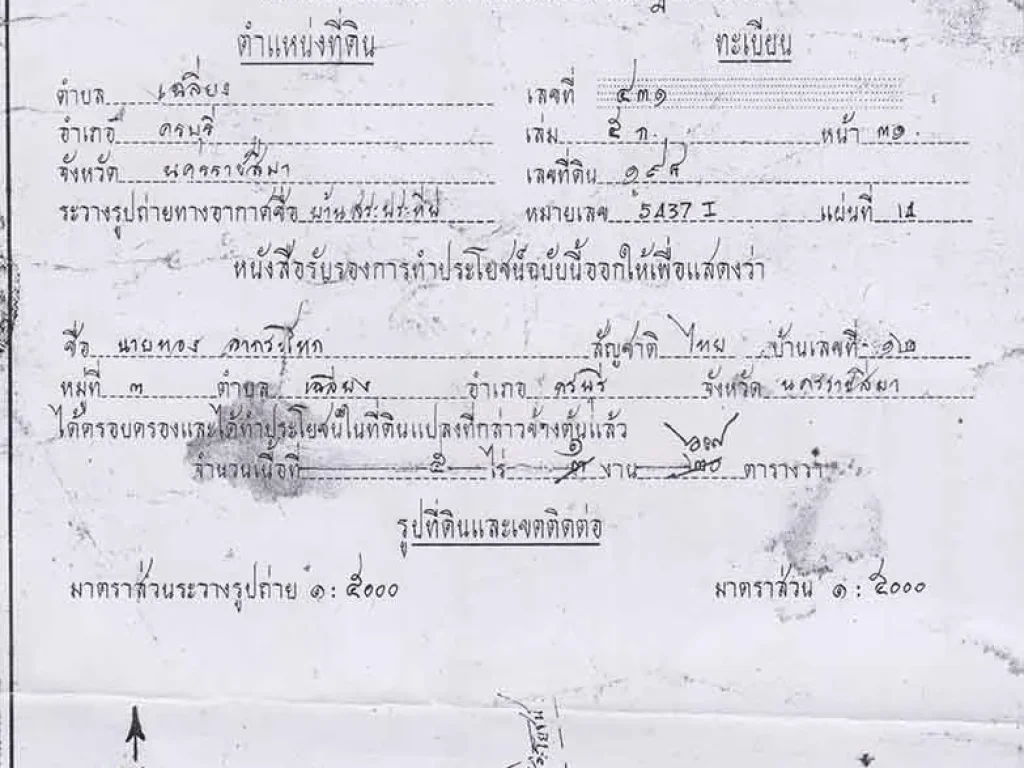 ตำแหน่งที่ดิน ทะเบียน
ตำบล เฉลียง เลขที่ ๔๓๑
อำเภอ ครบุรี เล่ม ๕ ก. หน้า ๓๑
จังหวัด นครราชสีมา เลขที่ดิน
ระวางรูปถ่ายทางอากาศชื่อ บ้านสระประทีป หมายเลข 5437 I แผ่นที่ 14
หนังสือรับรองการทำประโยชน์ฉบับนี้ออกให้เพื่อแสดงว่า
ชื่อ นายทอง สัญชาติ ไทย บ้านเลขที่ ๑๒
หมู่ที่ ๓ ตำบล เฉลียง อำเภอ ครบุรี จังหวัด นครราชสีมา
ได้ครอบครองและได้ทำประโยชน์ในที่ดินแปลงที่กล่าวข้างต้นแล้ว
จำนวนเนื้อที่ ๕ ไร่ ๑ งาน ตารางวา
รูปที่ดินและเขตติดต่อ
มาตราส่วนระวางรูปถ่าย ๑ : ๕๐๐๐ มาตราส่วน ๑ : ๕๐๐๐